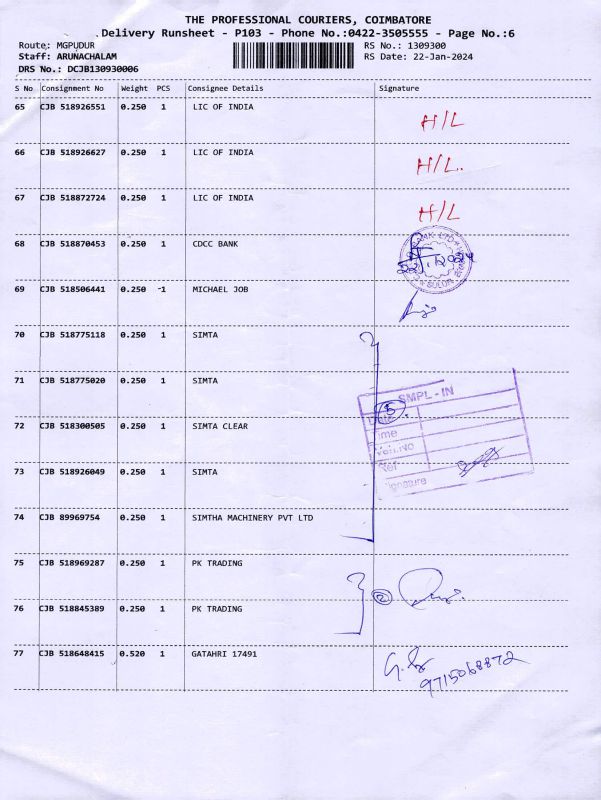 THE PROFESSIONAL COURIERS, COIMBATORE
Delivery Runsheet - P103 - Phone No.:0422-3505555 - Page No.:6
Route: MGPUDUR RS No.: 1309300
Staff: ARUNACHALAM RS Date: 22-Jan-2024
DRS No.: DCJB130930006
S No Consignment No Weight PCS Consignee Details Signature
65 CJB 518926551 0.250 1 LIC OF INDIA H/L
66 CJB 518926627 0.250 1 LIC OF INDIA H/L.
67 CJB 518872724 0.250 1 LIC OF INDIA H/L
68 CJB 518870453 0.250 1 CDCC BANK
69 CJB 518506441 0.250 1 MICHAEL JOB
70 CJB 518775118 0.250 1 SIMTA
71 CJB 518775020 0.250 1 SIMTA
SMPL - IN
72 CJB 518300505 0.250 1 SIMTA CLEAR 5
Time
73 CJB 518926049 0.250 1 SIMTA
Signature
74 CJB 89969754 0.250 1 SIMTHA MACHINERY PVT LTD
75 CJB 518969287 0.250 1 PK TRADING
2
76 CJB 518845389 0.250 1 PK TRADING
77 CJB 518648415 0.520 1 GATAHRI 17491
9715068872